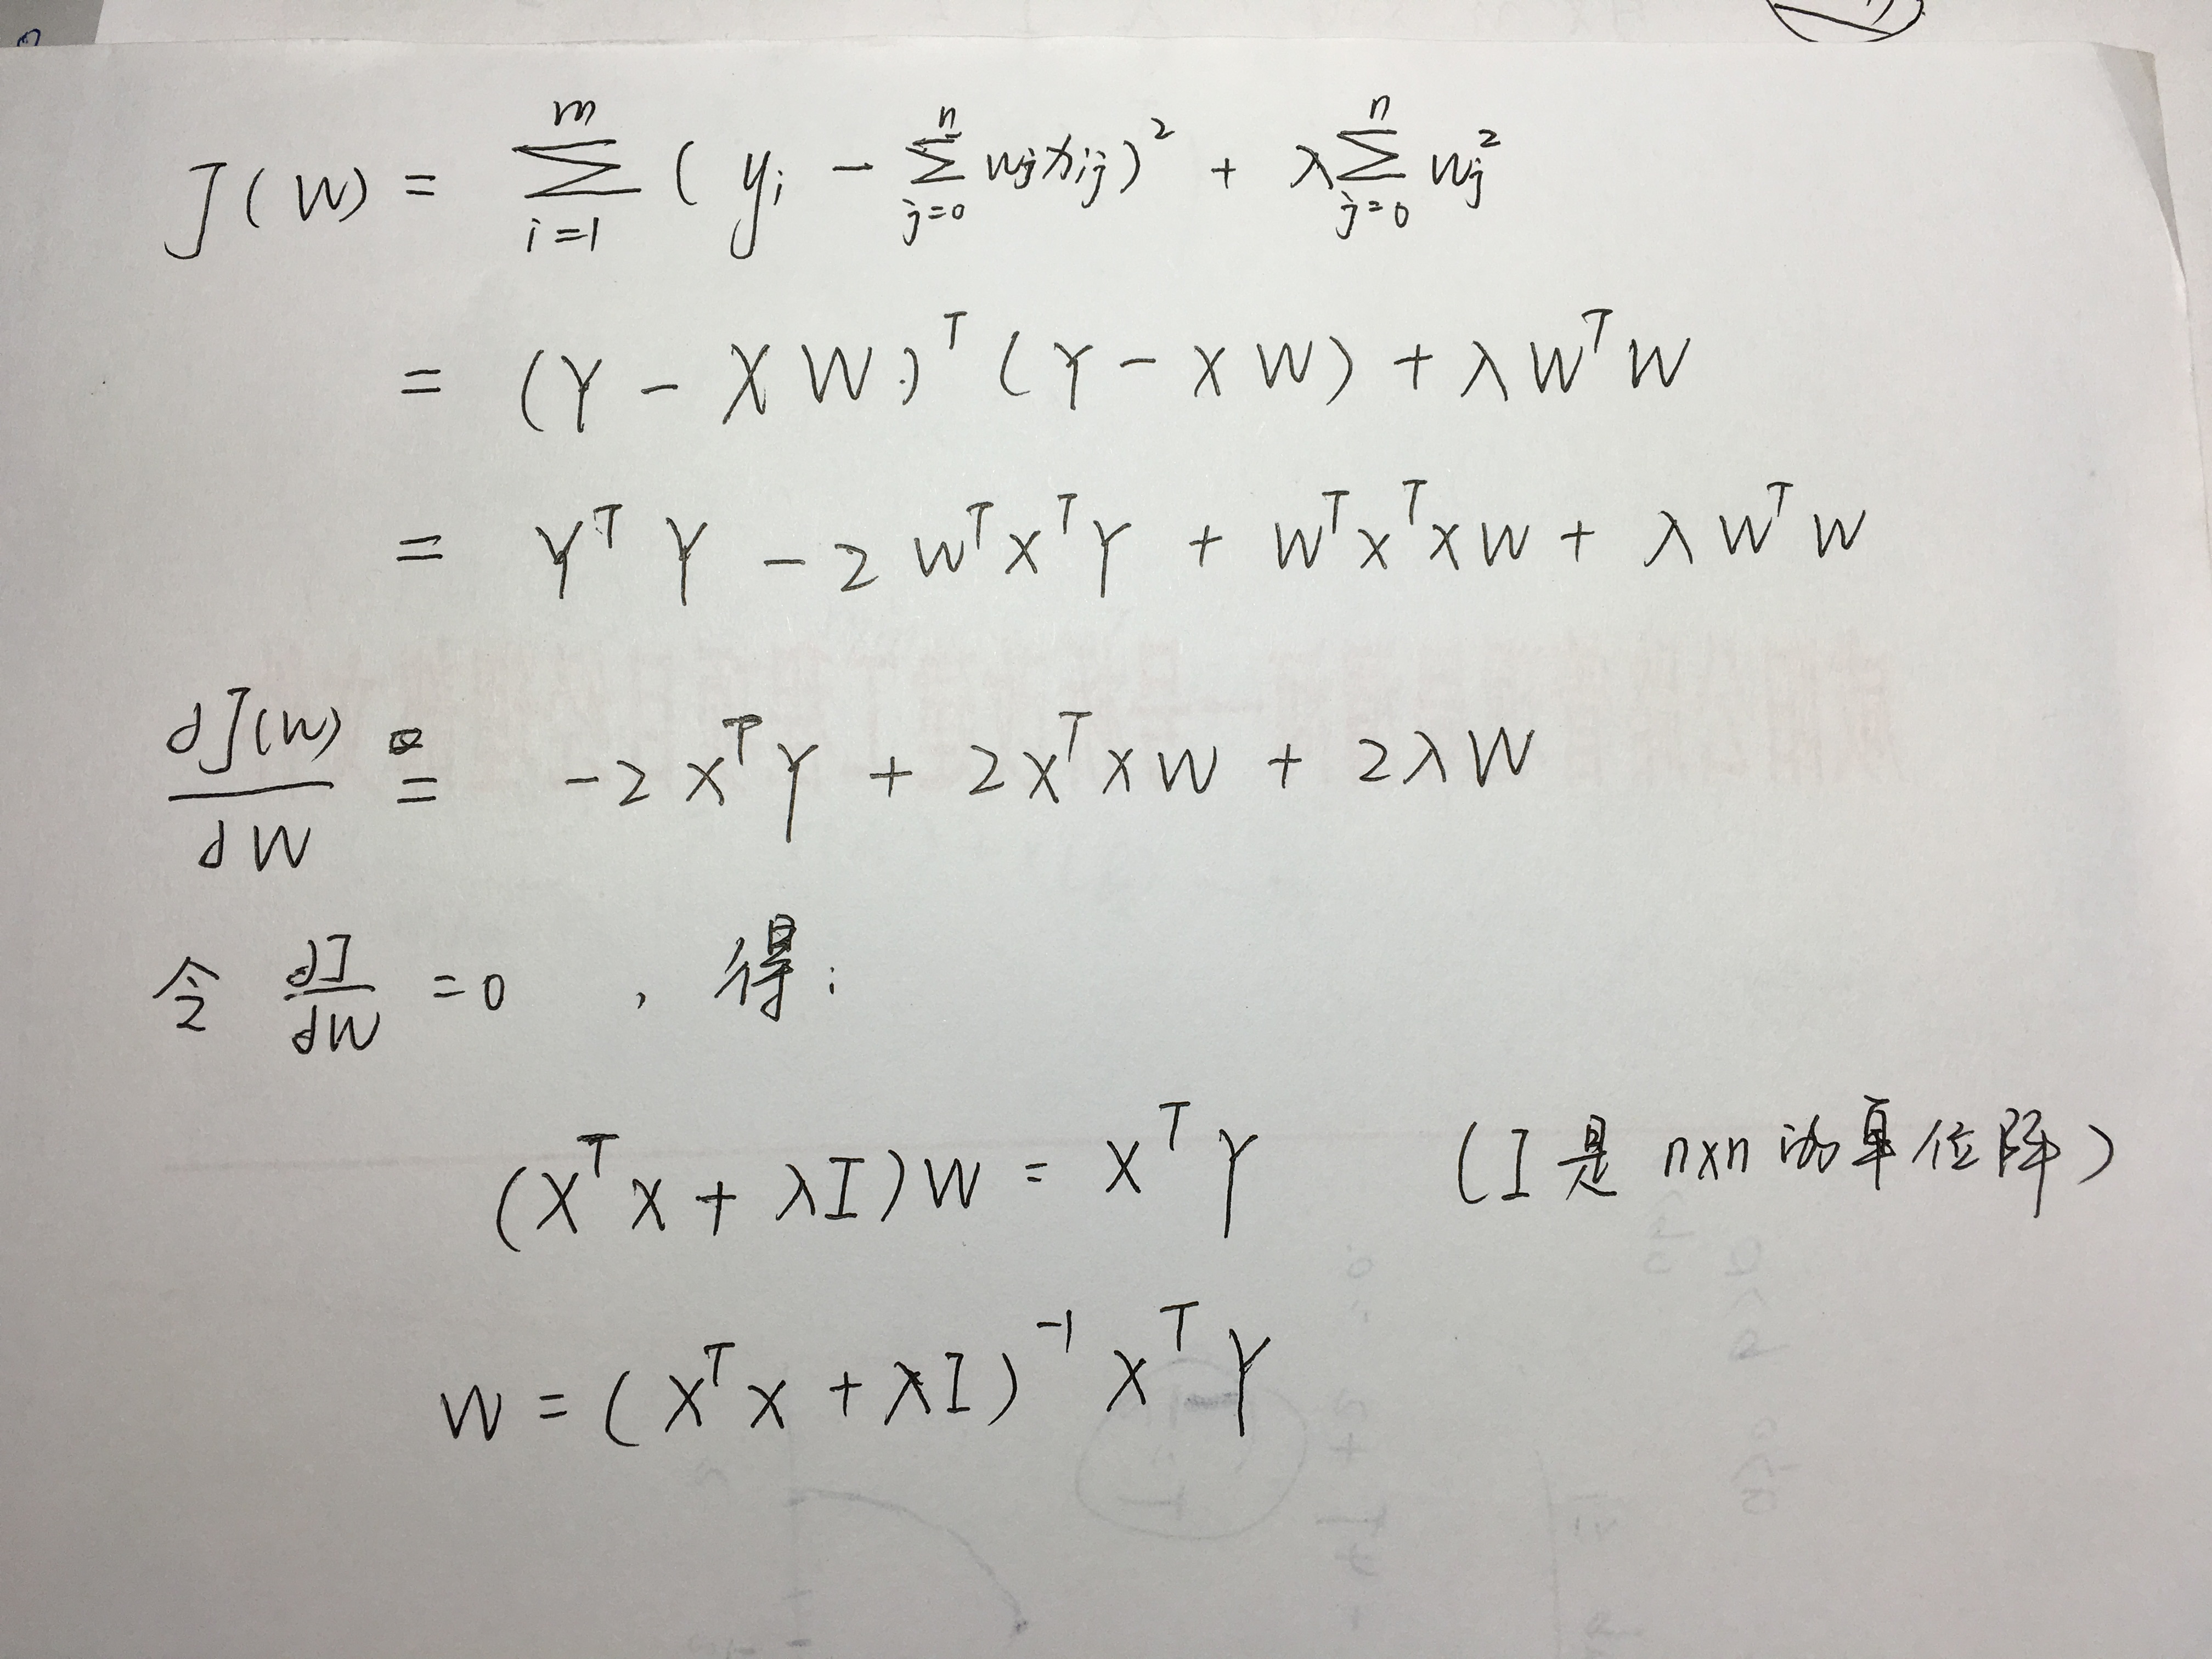 J(W) = \sum_{i=1}^{m} ( y_i - \sum_{j=0}^{n} w_j x_{ij} )^2 + λ \sum_{j=0}^{n} w_j^2
= (Y - XW)^T (Y - XW) + λW^T W
= Y^T Y - 2W^T X^T Y + W^T X^T XW + λW^T W
\frac{dJ(W)}{dW} = -2X^T Y + 2X^T XW + 2λW
令 \frac{dJ}{dW} = 0 , 得:
(X^T X + λI)W = X^T Y (I是 n×n 的单位阵)
W = (X^T X + λI)^{-1} X^T Y